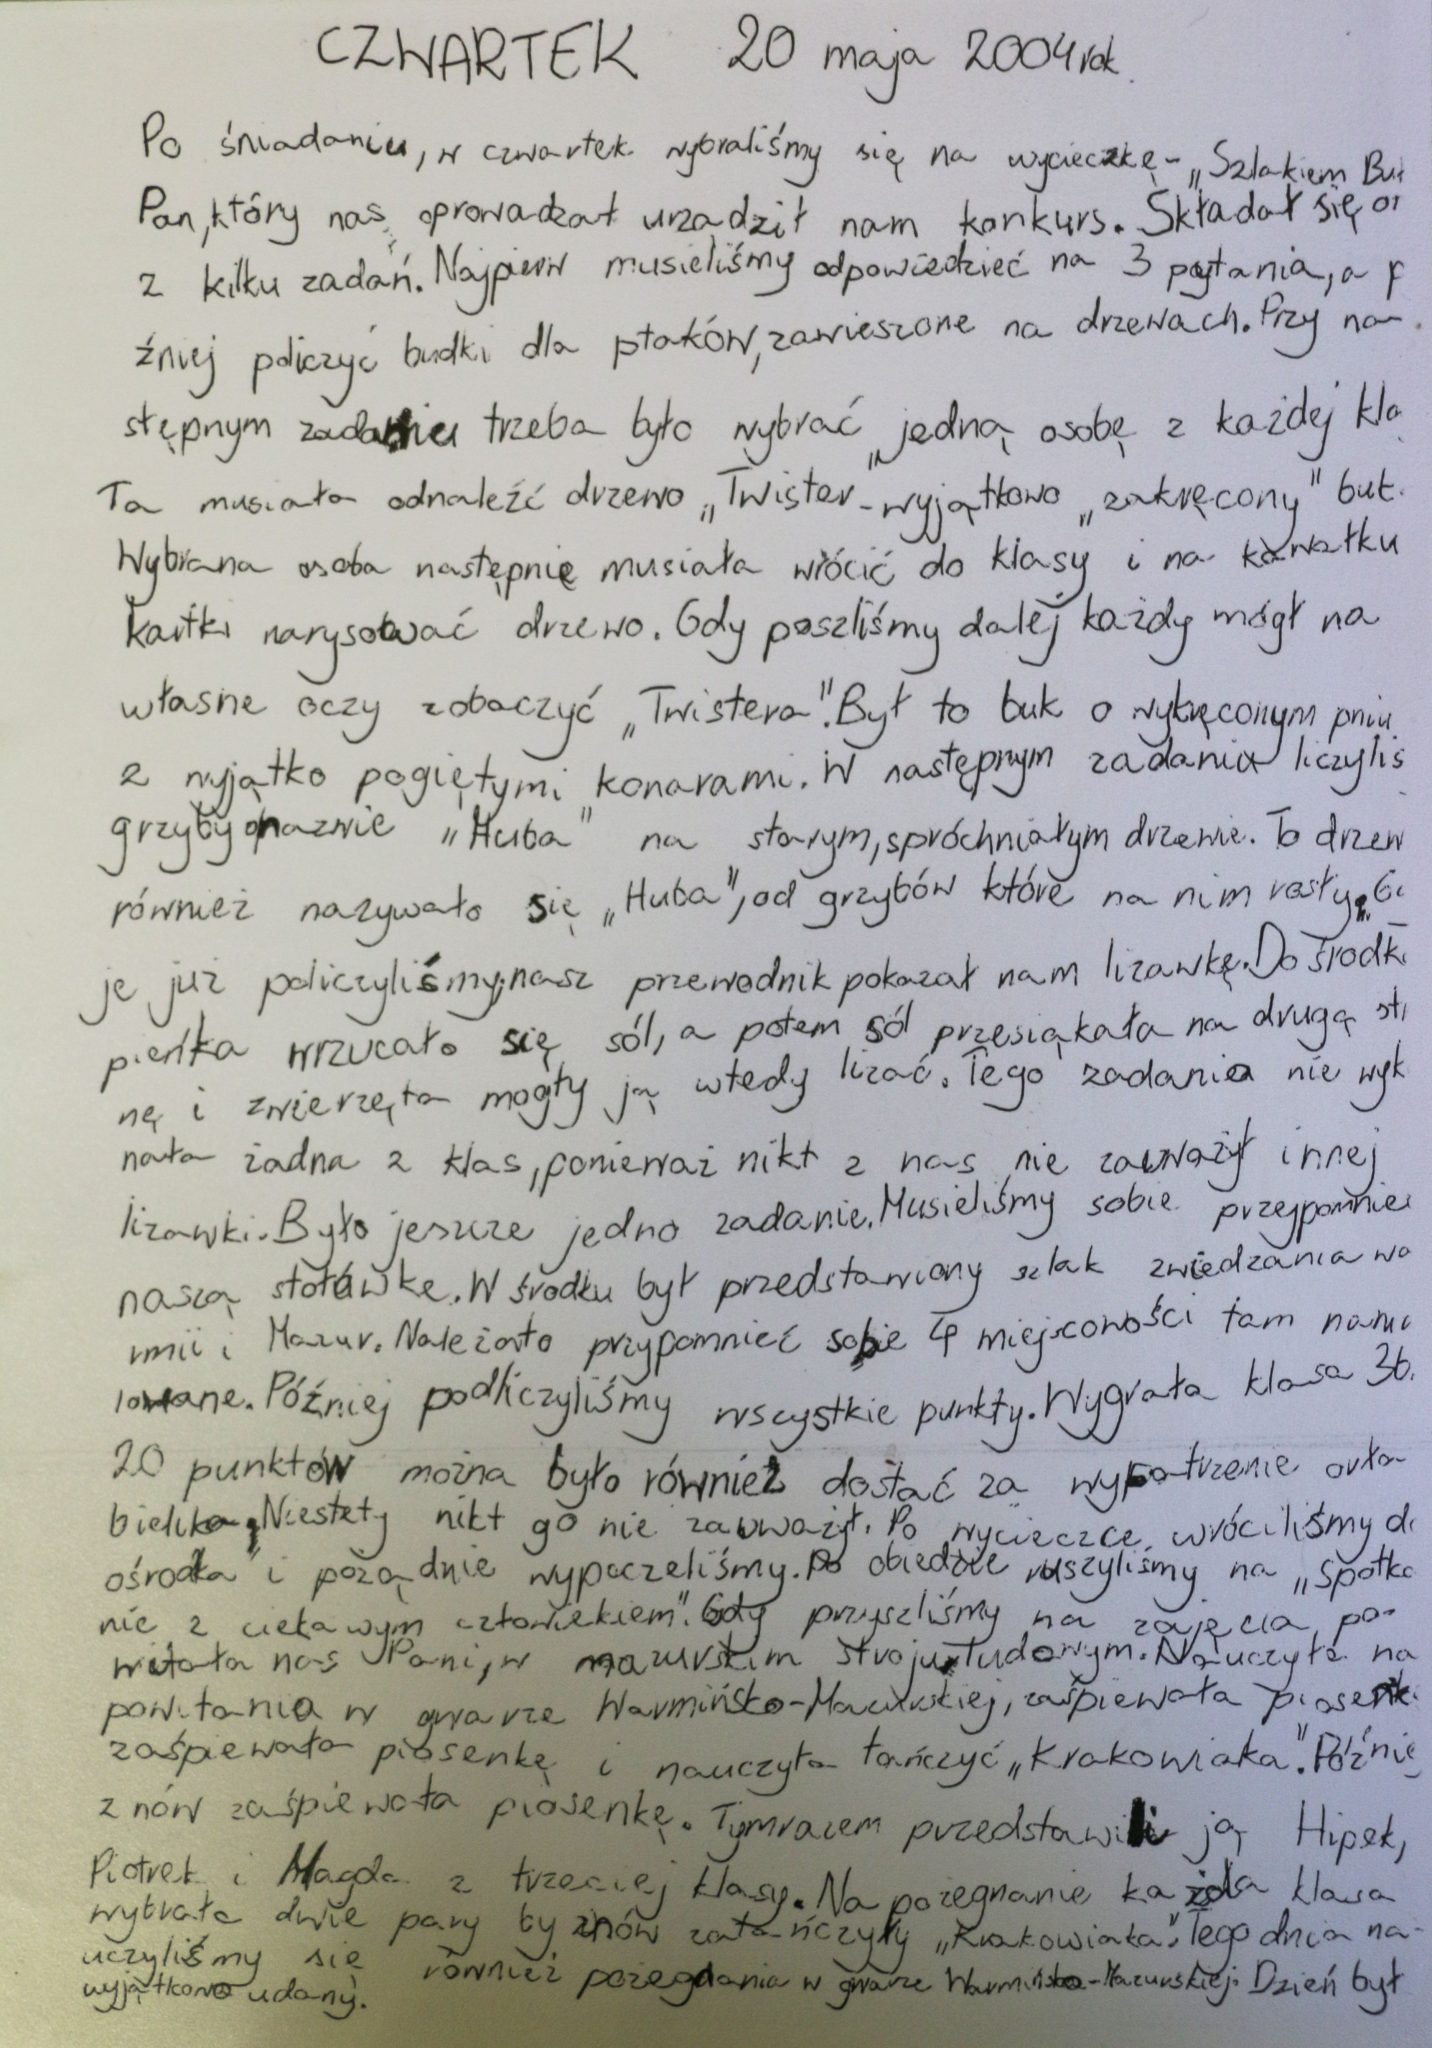 CZWARTEK 20 maja 2004 rok.
Po śniadaniu, w czwartek wybraliśmy się na wycieczkę - „Szlakiem Buk
Pan, który nas oprowadzał urządził nam konkurs. Składał się on
z kilku zadań. Najpierw musieliśmy odpowiedzieć na 3 pytania, a p
źniej policzyć budki dla ptaków, zawieszone na drzewach. Przy na-
stępnym zadaniu trzeba było wybrać jedną osobę z każdej kla
Ta musiała odnaleźć drzewo „Twister - wyjątkowo „zakręcony" buk.
Wybrana osoba następnie musiała wrócić do klasy i na kawałku
kartki narysować drzewo. Gdy poszliśmy dalej każdy mógł na
własne oczy zobaczyć „Twistera". Był to buk o wykręconym pniu
z wyjątko pogiętymi konarami. W następnym zadaniu liczyliś
grzyby o nazwie „Huba" na starym, spróchniałym drzewie. To drzew
również nazywało się „Huba", od grzybów które na nim rosły. G
je już policzyliśmy, nasz przewodnik pokazał nam lizawkę. Do środk
pieńka wrzucało się sól, a potem sól przesiąkała na drugą str
nę i zwierzęta mogły ją wtedy lizać. Tego zadania nie wyk
nała żadna z klas, ponieważ nikt z nas nie zauważył innej
lizawki. Było jeszcze jedno zadanie. Musieliśmy sobie przypomnie
naszą stołówkę. W środku był przedstawiony szlak zwiedzania Wa
rmii i Mazur. Należało przypomnieć sobie 4 miejscowości tam nama
lowane. Później podliczyliśmy wszystkie punkty. Wygrała klasa 3b.
20 punktów można było również dostać za wypatrzenie orła
bielika. Niestety nikt go nie zauważył. Po wycieczce wróciliśmy do
ośrodka i pożądnie wypoczeliśmy. Po obiedzie ruszyliśmy na „Spotka
nie z ciekawym człowiekiem". Gdy przyszliśmy na zajęcia po-
witała nas Pani, w mazurskim stroju ludowym. Nauczyła na
powitania w gwarze Warmińsko-Mazurskiej, zaśpiewała piosenk
zaśpiewała piosenkę i nauczyła tańczyć „Krakowiaka". Późnie
znów zaśpiewała piosenkę. Tymrazem przedstawili ją Hipek,
Piotrek i Magda z trzeciej klasy. Na pożegnanie każda klasa
wybrała dwie pary by znów zatańczyły „Krakowiaka". Tego dnia na-
uczyliśmy się również pożegnania w gwarze Warmińsko-Mazurskiej. Dzień był
wyjątkowo udany.